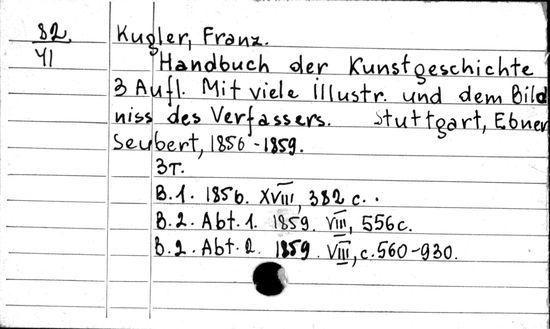 82
41
Kugler, Franz.
Handbuch der Kunstgeschichte
3 Aufl. Mit viele illustr. und dem Bild
niss des Verfassers. Stuttgart, Ebner
Seubert, 1856-1859.
3т.
B.1. 1856. XVIII, 382 c.
B.2. Abt.1. 1859. VIII, 556c.
B.2. Abt.2. 1859. VIII, c.560-930.